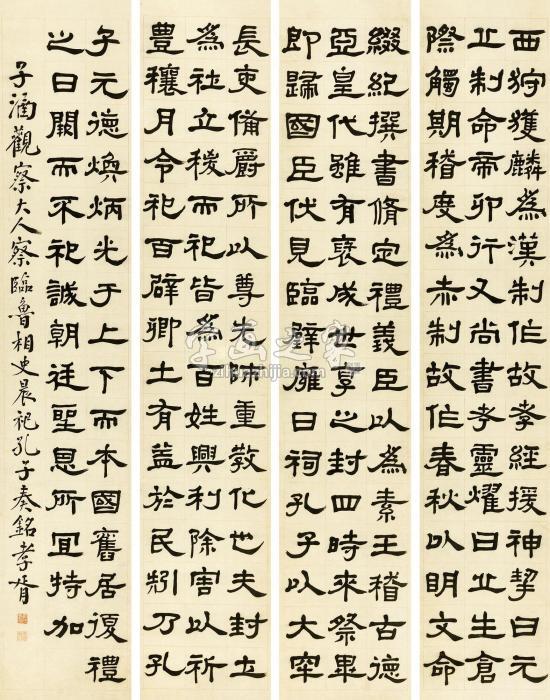 西狩獲麟為漢制作故孝經援神挈曰元
丘制命帝卯行又尚書考靈燿曰丘生倉
際觸期稽度為赤制故作春秋以明文命
綴紀撰書脩定禮義臣以為素王稽古德
亞皇代雖有襃成世享之封四時來祭畢
即歸國臣伏見臨辟廱日祠孔子以大牢
長吏備爵所以尊先師重教化也夫封土
為社立稷而祀皆為百姓興利除害以祈
豊穰月令祀百辟卿士有益於民矧乃孔
子元德煥炳光于上下而本國舊居復禮
之日闕而不祀誠朝廷聖恩所宜特加
子涵觀察大人察臨魯相史晨祀孔子奏銘孝胥
字画之家